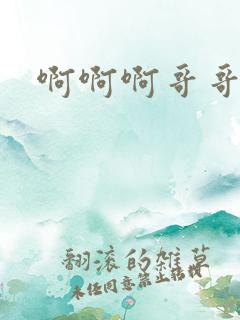 啊啊啊哥哥
翻滚的雑草
未经同意禁止转载